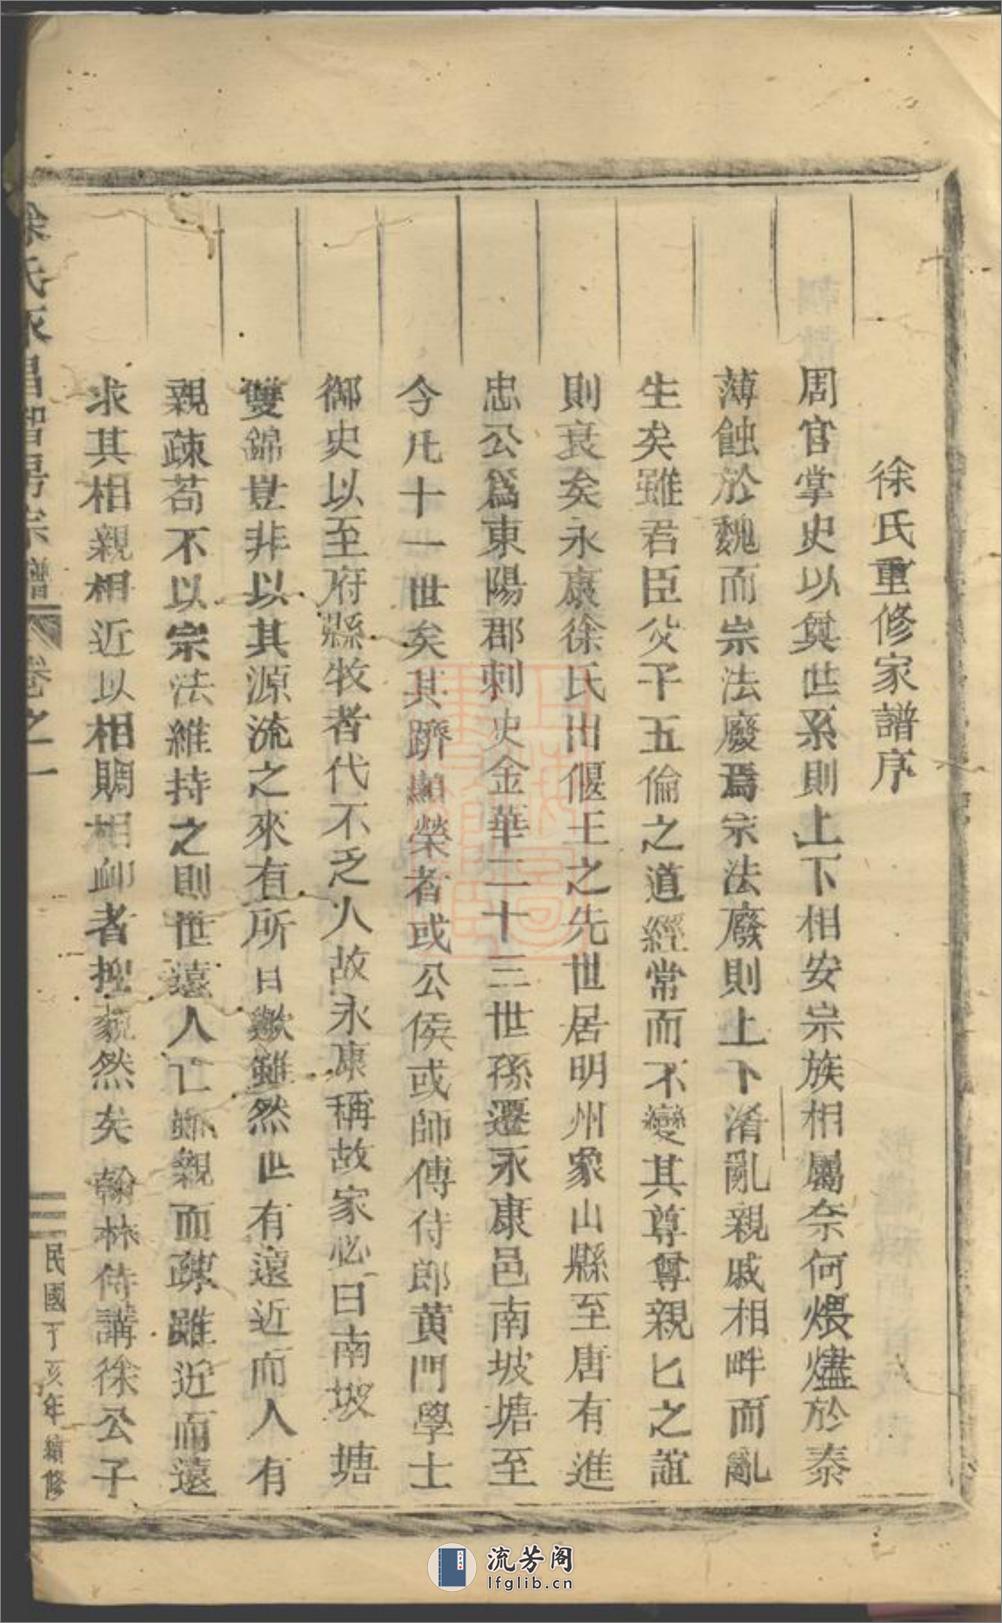 徐氏重修家譜序
周官掌史以奠世系則上下相安宗族相屬奈何煨燼於秦
薄蝕於魏而宗法廢焉宗法廢則上下淆亂親戚相畔而亂
生矣雖君臣父子五倫之道經常而不變其尊尊親匕之誼
則衰矣永康徐氏出偃王之先世居明州象山縣至唐有進
忠公爲東陽郡刺史金華二十三世孫遷永康邑南坡塘至
今凡十一世矣其躋顯榮者或公侯或師傅侍郎黄門學士
御史以至府縣牧者代不乏人故永康稱故家必曰南坡塘
雙錦豈非以其源流之來有所自歟雖然世有遠近而人有
親疎苟不以宗法維持之則世遠人亡雖親而疎雖近而遠
求其相親相近以相賙相卹者抑藐然矣翰林侍講徐公子
徐氏永昌智房宗譜
卷之一
民國丁亥年續修
流芳阁
lfglib.cn